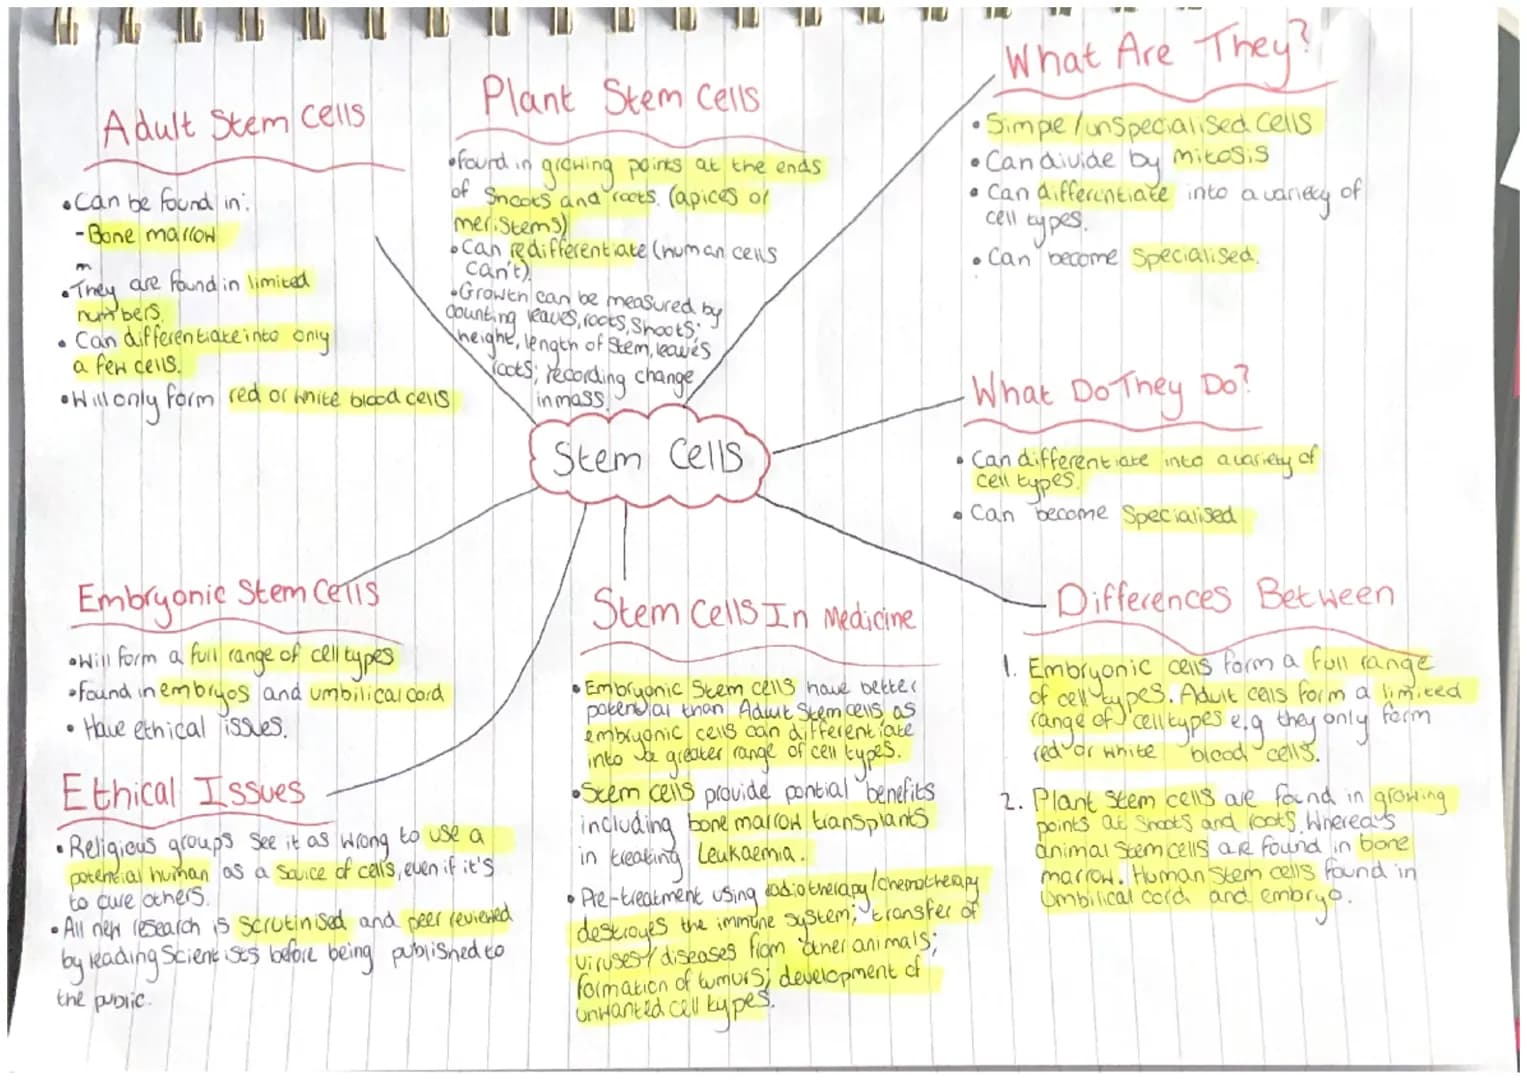 Adult Stem Cells
• Can be found in:
- Bone marrow
m
• They are found in limited
numbers.
• Can differentiate into only
a few cells.
• Will only form red or white blood cells
Plant Stem Cells
• found in growing points at the ends
of Shoots and roots. (apices or
meristems)
• Can redifferentiate (human cells
can't).
• Growth can be measured by
counting leaves, roots, Shoots;
height, length of Stem, leaves
roots; recording change
in mass.
What Are They?
• Simple/unspecialised cells
• Can divide by mitosis
• Can differentiate into a variety of
cell types.
• Can become Specialised.
What Do They Do?
• Can differentiate into a variety of
cell types.
• Can become Specialised
Stem Cells
Embryonic Stem Cells
• Will form a full range of cell types
• found in embryos and umbilical cord
• Have ethical issues.
Ethical Issues
• Religious groups see it as wrong to use a
potential human as a source of cells, even if it's
to cure others.
• All new research is scrutinised and peer reviewed
by leading Scientists before being published to
the public.
Stem Cells In Medicine
• Embryonic Stem cells have better
potential than Adult Stem cells, as
embryonic cells can differentiate
into a greater range of cell types.
• Stem cells provide pontial benefits
including bone marrow transplants
in treating Leukaemia.
• Pre-treatment using radiotherapy/chemotherapy
destroyes the immune system; transfer of
viruses/diseases from other animals;
formation of tumurs; development of
unwanted cell types.
Differences Between
1. Embryonic cells form a full range
of cell types. Adult cells form a limited
range of cell types e.g they only form
red or white blood cells.
2. Plant stem cells are found in growing
points at shoots and roots. Whereas
animal stem cells are found in bone
marrow. Human stem cells found in
umbilical cord and embryo.